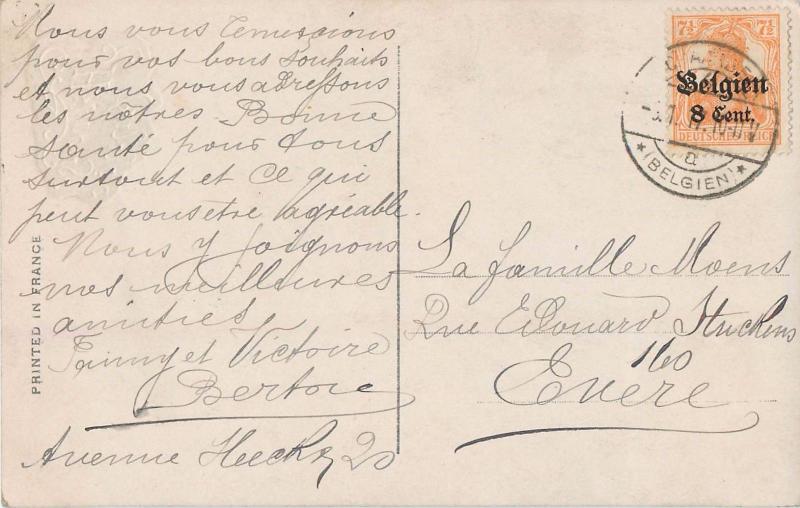 Nous vous remercions
pour vos bons souhaits
et nous vous adressons
les nôtres Bonne
santé pour tous
surtout et ce qui
peut vous etre agréable.
Nous y joignons
nos meilleures
amitiés
et Victoire
Avenue 20
PRINTED IN FRANCE
7½ 7½
Belgien
8 Cent.
DEUTSCHES REICH
a
★ (BELGIEN) ★
La famille Moens
Rue Edouard Stuckens
160
Evere